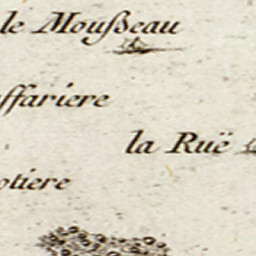 le Moußeau
ffariere
la Ruë
otiere